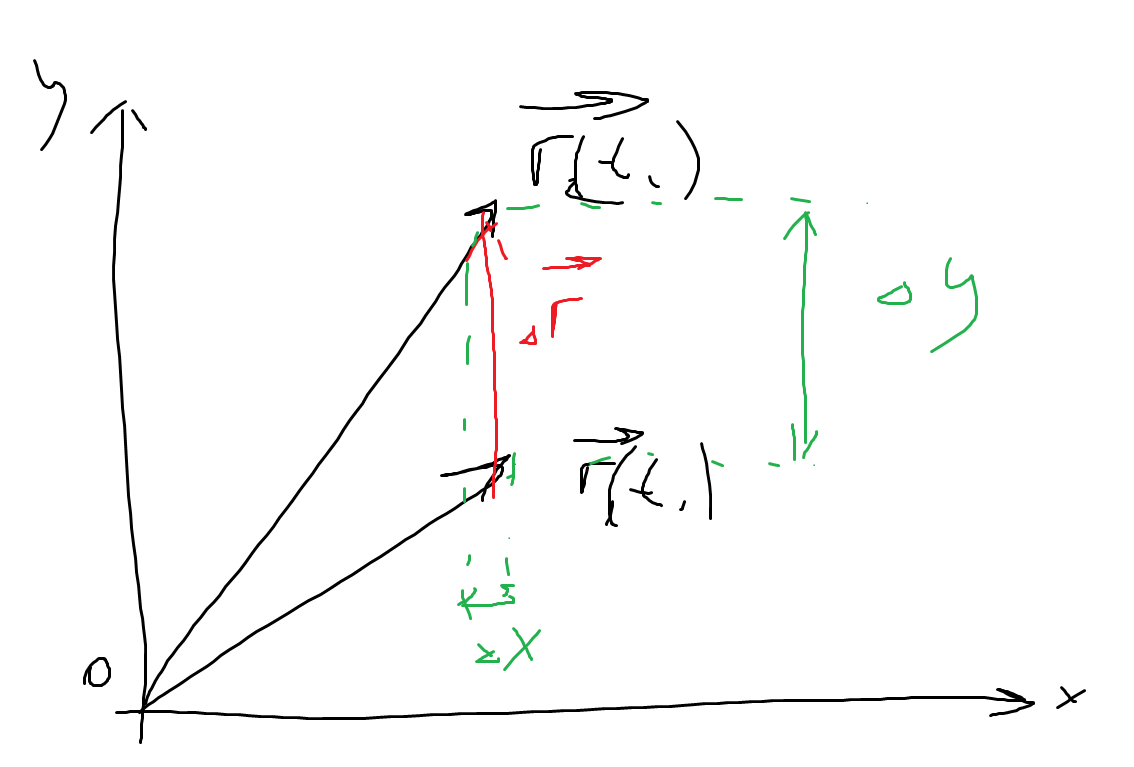 y
r(t₁)
Δy
Δr
r(t₁)
Δx
0
x